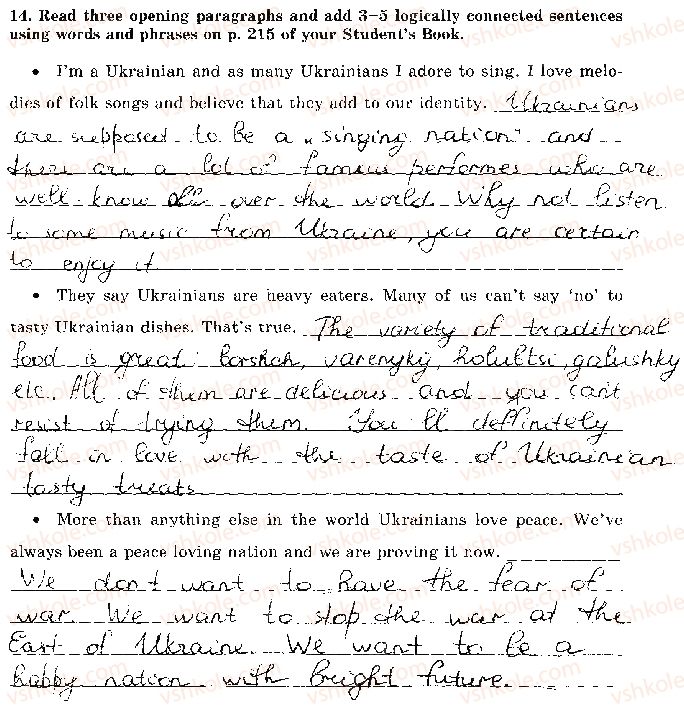 14. Read three opening paragraphs and add 3–5 logically connected sentences
using words and phrases on p. 215 of your Student's Book.
• I'm a Ukrainian and as many Ukrainians I adore to sing. I love melo-
dies of folk songs and believe that they add to our identity. Ukrainians
are supposed to be a „singing nation" and
there are a lot of famous performes who are
well know all over the world. Why not listen
to some music from Ukraine, you are certain
to enjoy it.
• They say Ukrainians are heavy eaters. Many of us can't say 'no' to
tasty Ukrainian dishes. That's true. The variety of traditional
food is great: borshch, varenyky, holubtsi, galushky
etc. All of them are delicious and you can't
resist of trying them. You'll deffinitely
fall in love with the taste of Ukrainean
tasty treats
• More than anything else in the world Ukrainians love peace. We've
always been a peace loving nation and we are proving it now.
We don't want to have the fear of
war. We want to stop the war at the
East of Ukraine. We want to be a
habby nation with bright future.